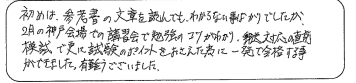 初めは、参考書の文章を読んでも、わからない事ばかりでしたが、
2月の神戸会場での講習会で勉強のコツがわかり、対応の直前
模試で更に試験のポイントをおさえた為に一発で合格する事
ができました。有難うございました。